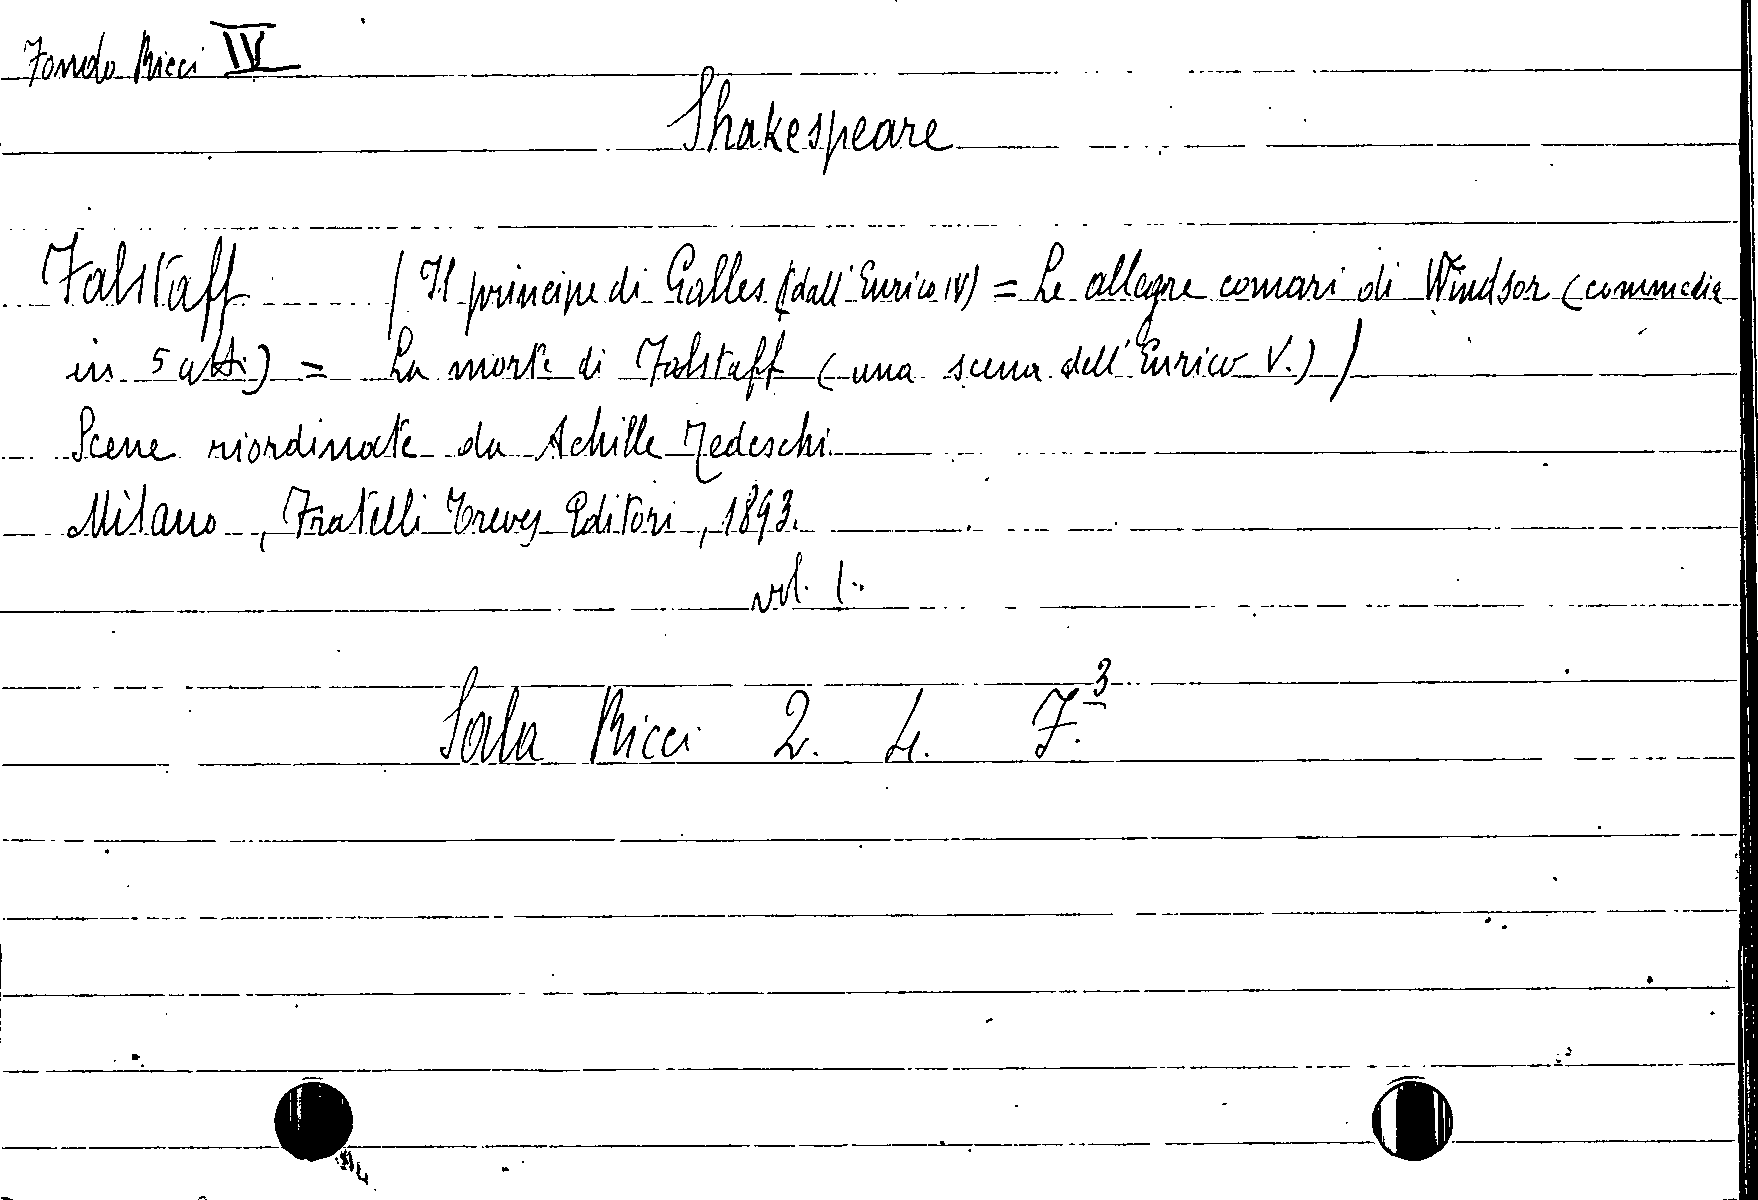 Fondo Ricci IV
Shakespeare
Falstaff / Il principe di Galles (dall' Enrico IV) = Le allegre comari di Windsor (commedia
in 5 atti) = La morte di Falstaff (una scena dell' Enrico V.) /
Scene riordinate da Achille Tedeschi.
Milano, Fratelli Treves Editori, 1893.
vol. 1.
Sala Ricci 2. 4. F.3